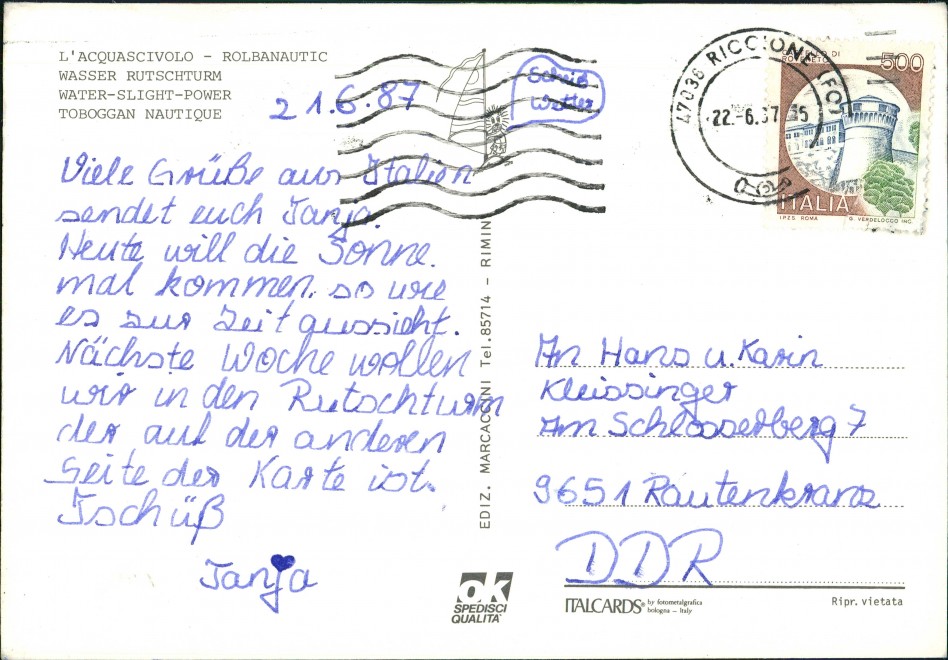 L'ACQUASCIVOLO - ROLBANAUTIC
WASSER RUTSCHTURM
WATER-SLIGHT-POWER
TOBOGGAN NAUTIQUE
21.6.87
Scheiß
Wetter
Viele Grüße aus Italien
sendet euch Tanja.
Heute will die Sonne
mal kommen. so wie
es zur Zeit aussieht.
Nächste Woche wollen
wir in den Rutschturm
der auf der anderen
Seite der Karte ist.
Tschüß
Tanja
EDIZ. MARCACCINI Tel.85714 - RIMINI
47036 RICCIONE (FO)
22.-6.87
500
ITALIA
I.P.Z.S. ROMA
G. VERDELOCCO INC.
An Hans u. Karin
Kleissinger
Am Schlösserberg 7
9651 Rautenkranz
DDR
OK
SPEDISCI
QUALITA'
ITALCARDS® by fotometalgrafica
bologna - Italy
Ripr. vietata